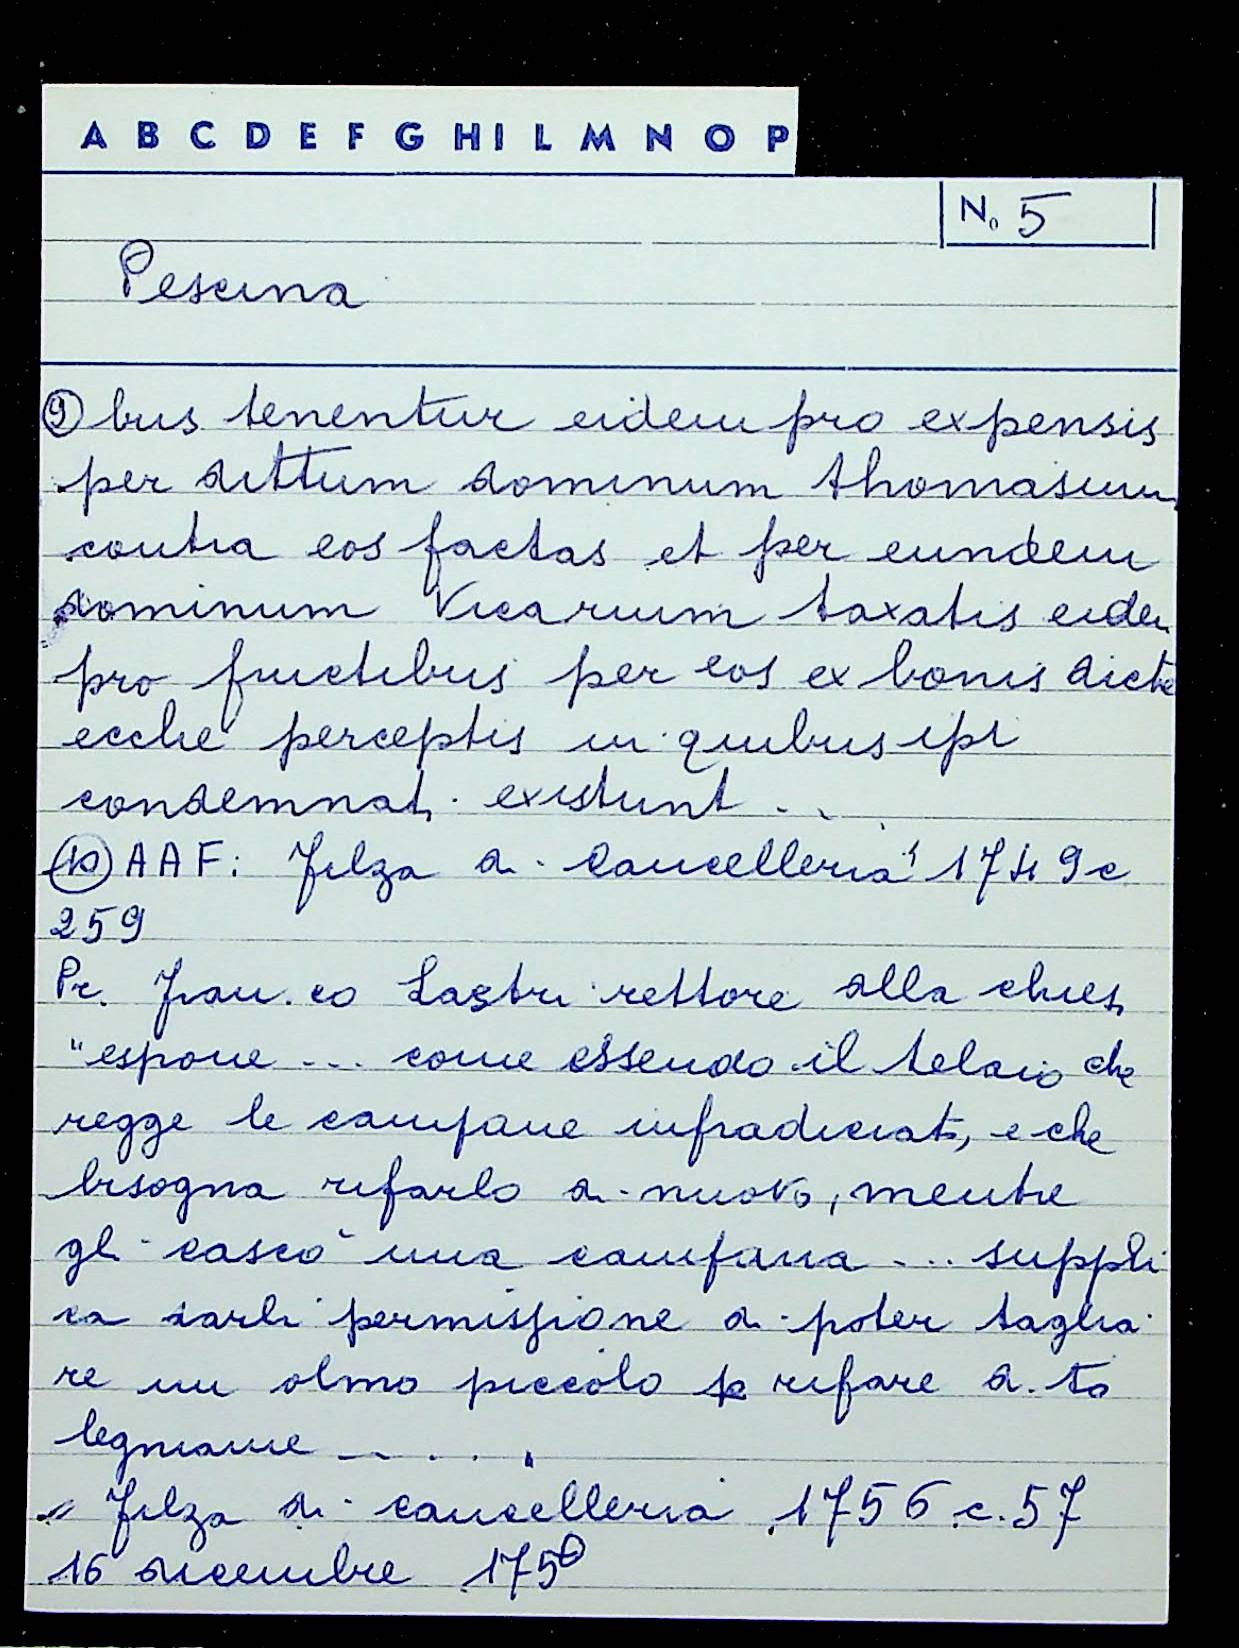 A B C D E F G H I L M N O P
N. 5
Pescina
9) bus tenentur eidem pro expensis
per dittum dominum thomasium
contra eos factas et per eundem
dominum Vicarium taxatis eidem
pro fructibus per eos ex bonis dicte
ecche perceptis in quibus ipsi
condemnati existunt ...
10) AAF: Filza di cancelleria 1749 c
259
Pr. Fran.co Lastri rettore alla chies,
"espone ... come essendo il telaio che
regge le campane infradiciato, e che
bisogna rifarlo di nuovo, mentre
gli cascò una campana ... suppli
ca darli permissione di poter taglia
re un olmo piccolo p rifare d.to
legniame .....
" Filza di cancelleria 1756 c. 57
16 dicembre 1756